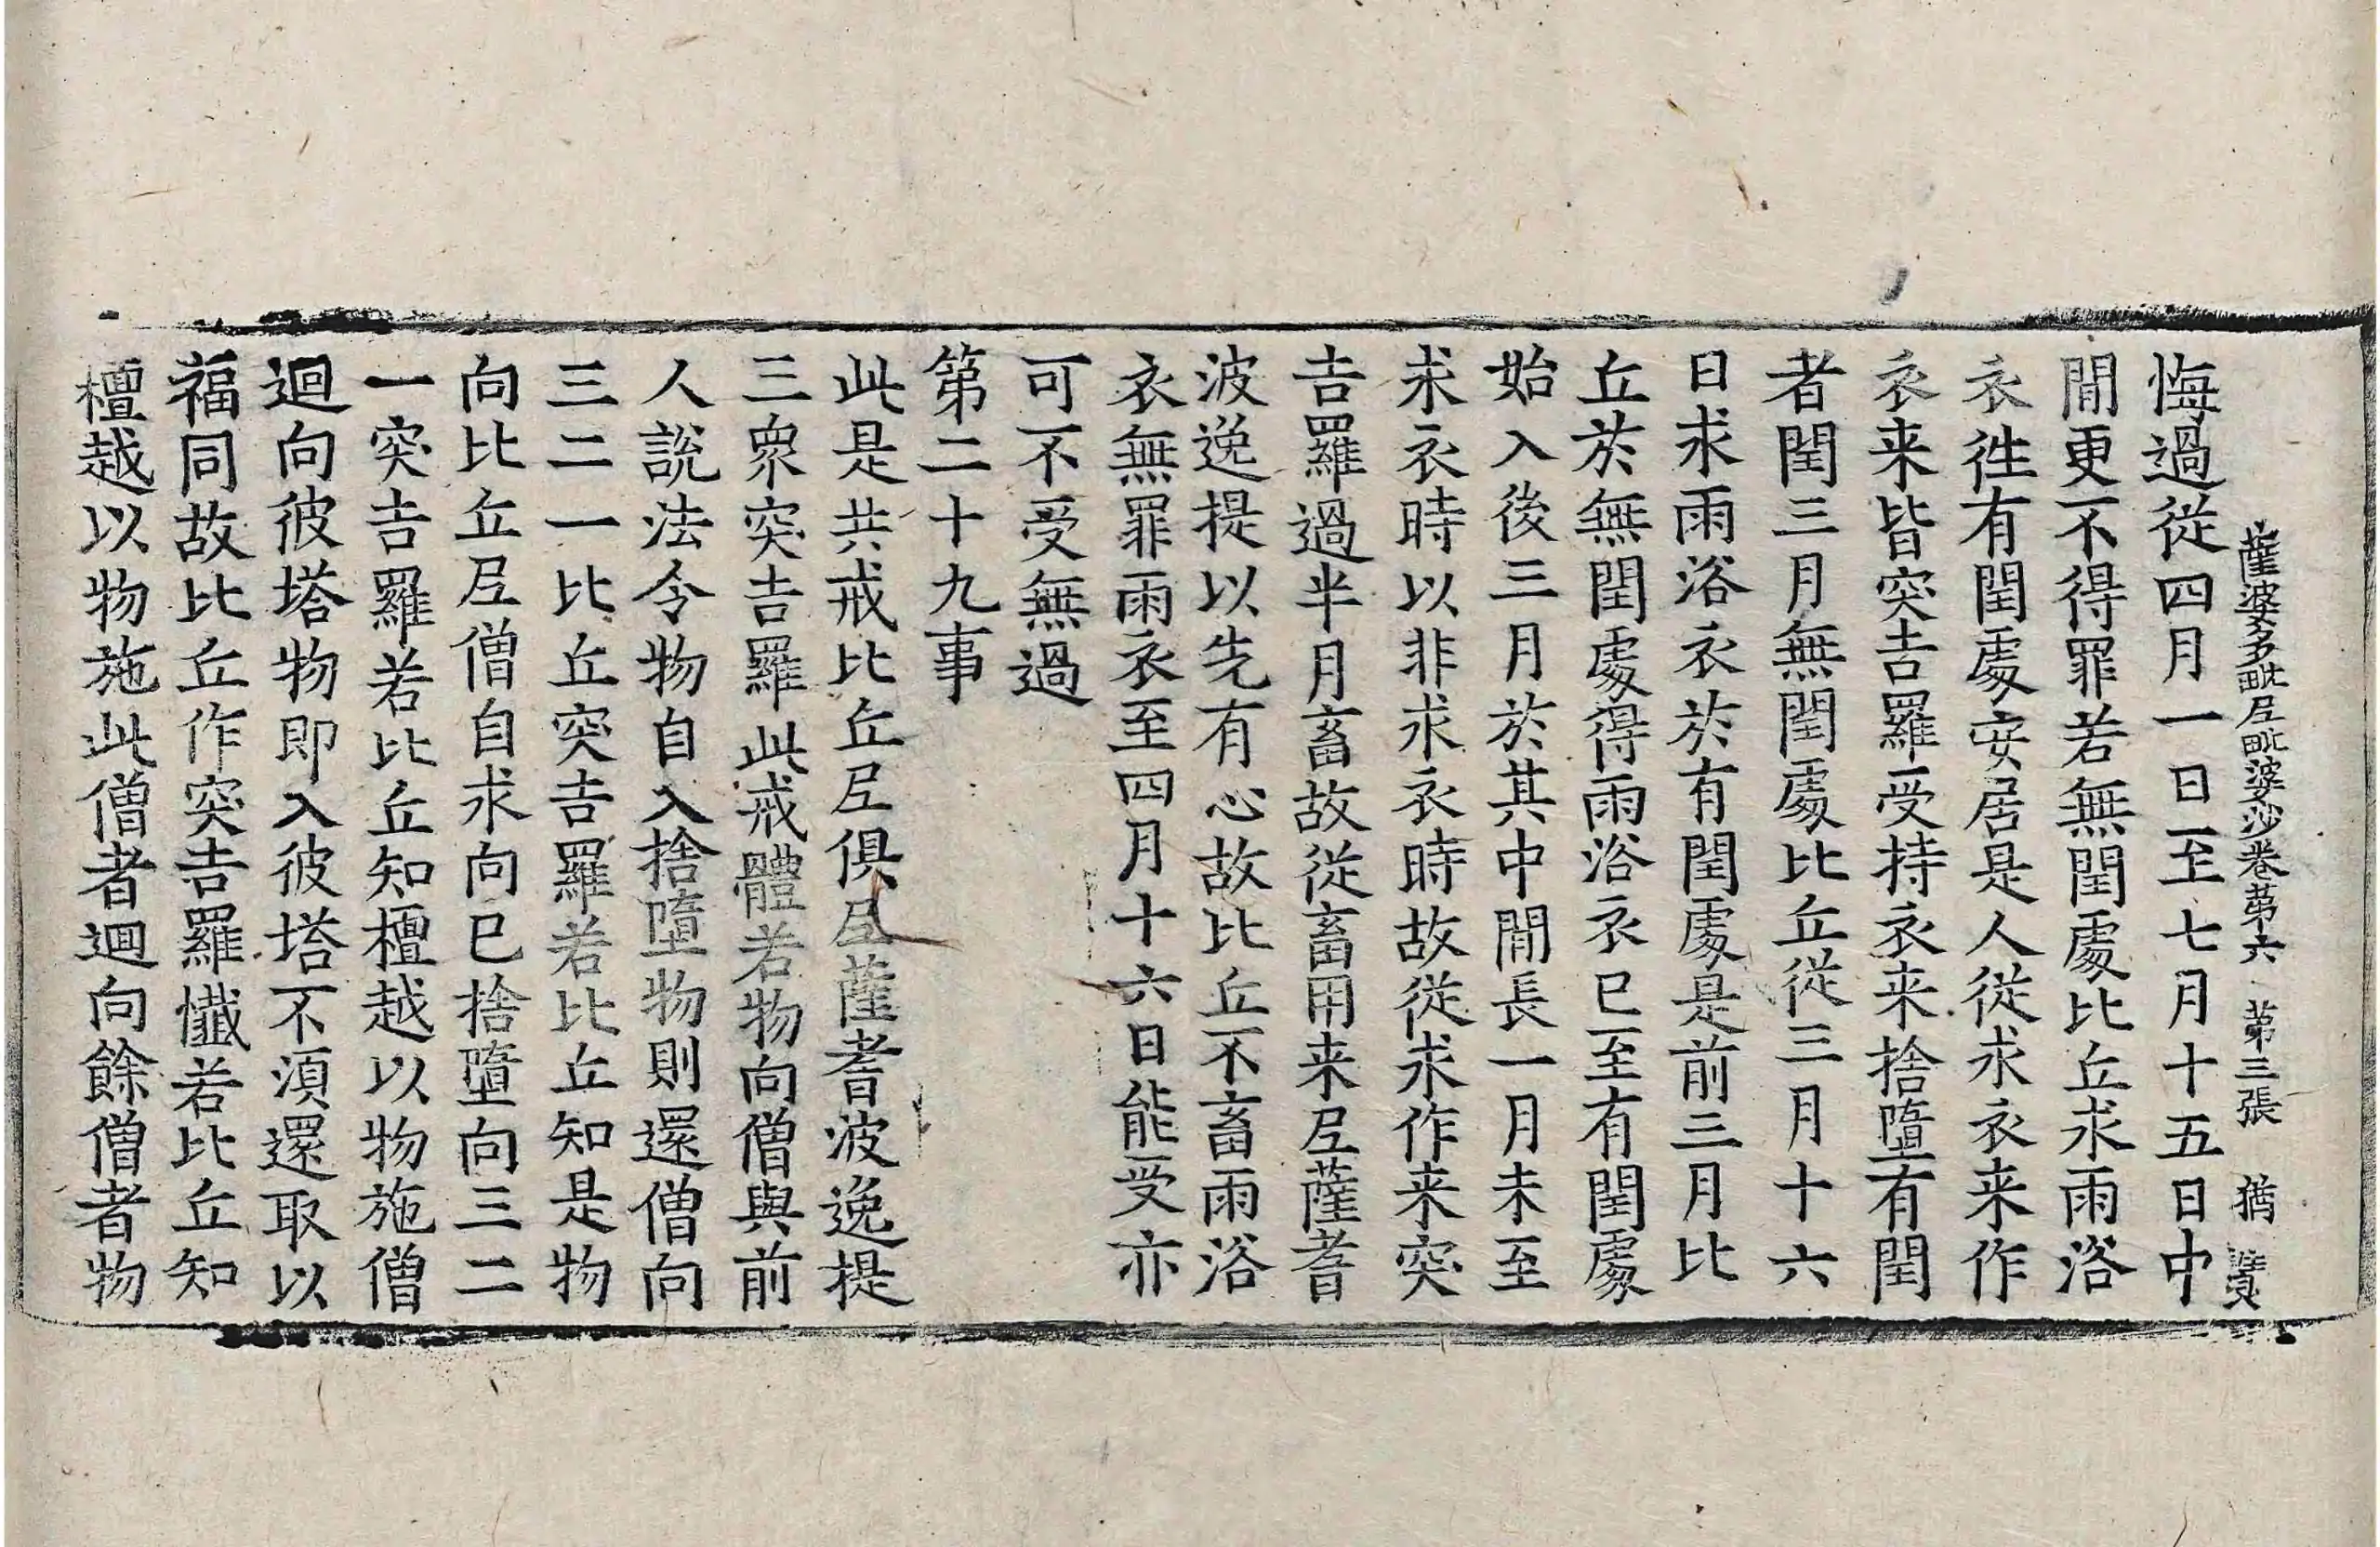 薩婆多毗尼毗婆沙卷第六 第三張 猶
悔過從四月一日至七月十五日中
閒更不得罪若無閏處比丘求雨浴
衣徃有閏處安居是人從求衣来作
衣来皆突吉羅受持衣来捨墮有閏
者閏三月無閏處比丘從三月十六
日求雨浴衣於有閏處是前三月比
丘於無閏處得雨浴衣已至有閏處
始入後三月於其中閒長一月未至
求衣時以非求衣時故從求作来突
吉羅過半月畜故從畜用来尼薩耆
波逸提以先有心故比丘不畜雨浴
衣無罪雨衣至四月十六日能受亦
可不受無過
第二十九事
此是共戒比丘尼俱尼薩耆波逸提
三衆突吉羅此戒體若物向僧與前
人說法令物自入捨墮物則還僧向
三二一比丘突吉羅若比丘知是物
向比丘尼僧自求向已捨墮向三二
一突吉羅若比丘知檀越以物施僧
迴向彼塔物即入彼塔不湏還取以
福同故比丘作突吉羅懺若比丘知
檀越以物施此僧者迴向餘僧者物